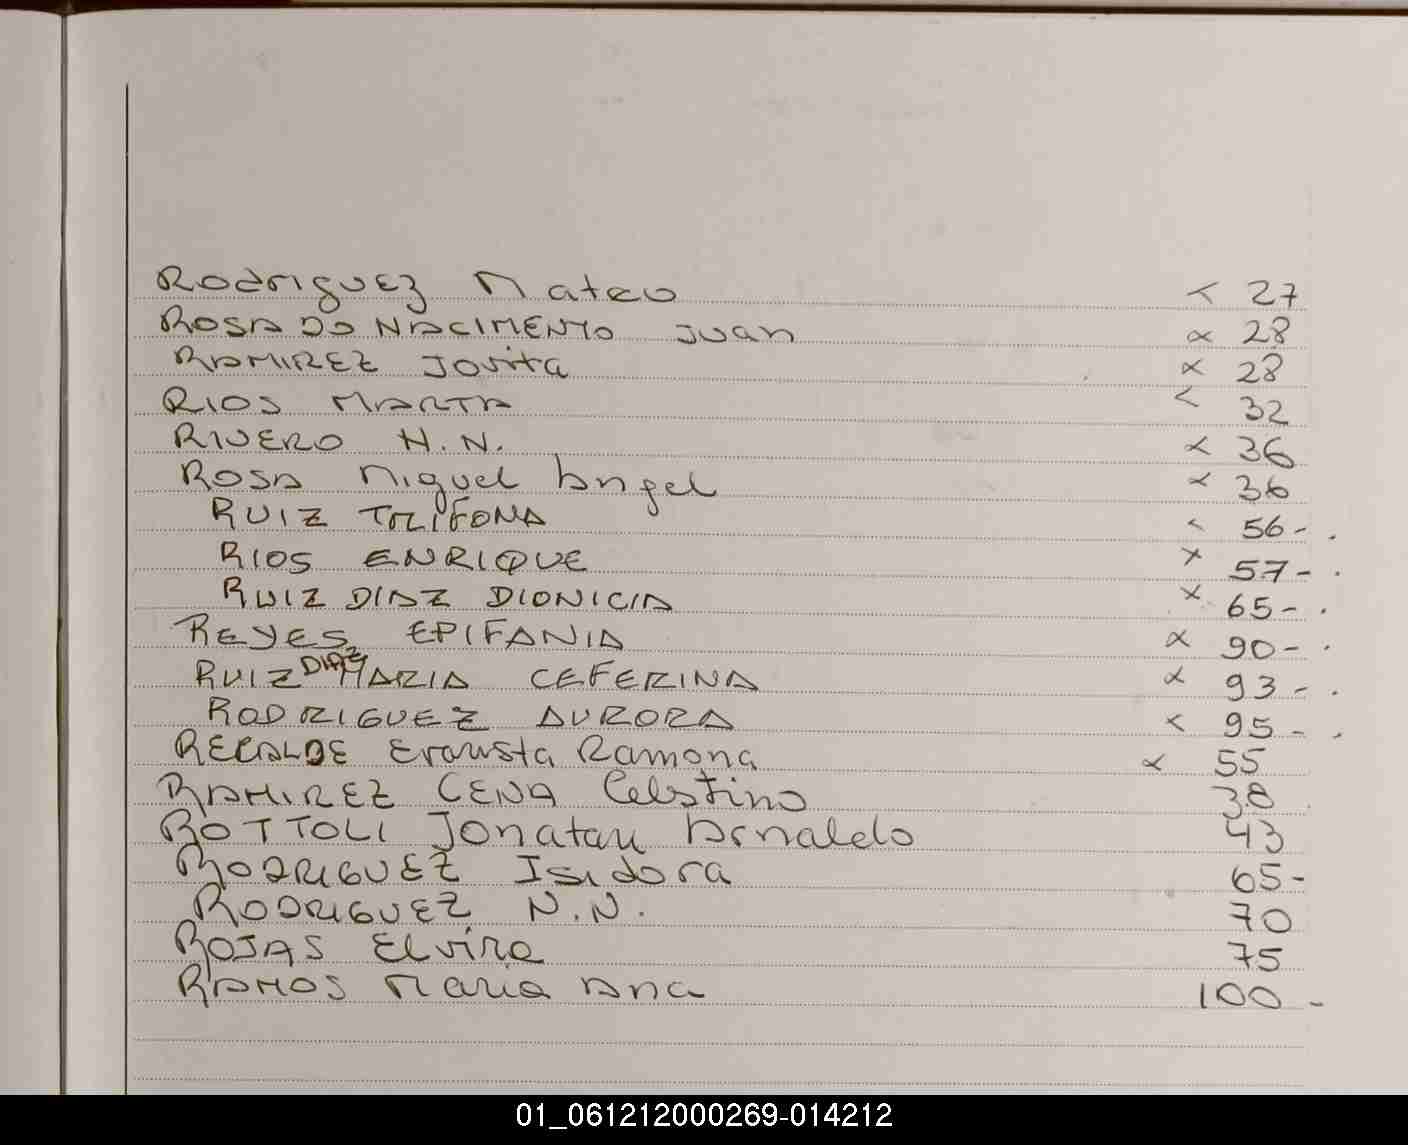 Rodriguez Mateo < 27
ROSA DO NACIMENTO Juan x 28
RAMIREZ Jovita x 28
RIOS MARTA < 32
RIVERO N.N. x 36
ROSA Miguel Angel x 36
RUIZ TRIFONA < 56-.
RIOS ENRIQUE x 57-.
RUIZ DIAZ DIONICIA x 65-.
REYES EPIFANIA x 90-.
RUIZ DIAZ MARIA CEFERINA x 93-.
RODRIGUEZ AURORA < 95-.
RECALDE Ramona x 55
RAMIREZ CENA Celestino 38
ROTTOLI Jonatan Arnaldo 43
RODRIGUEZ Isidora 65-
RODRIGUEZ N.N. 70
ROJAS Elvira 75
RAMOS Maria Ana 100-
01_061212000269-014212